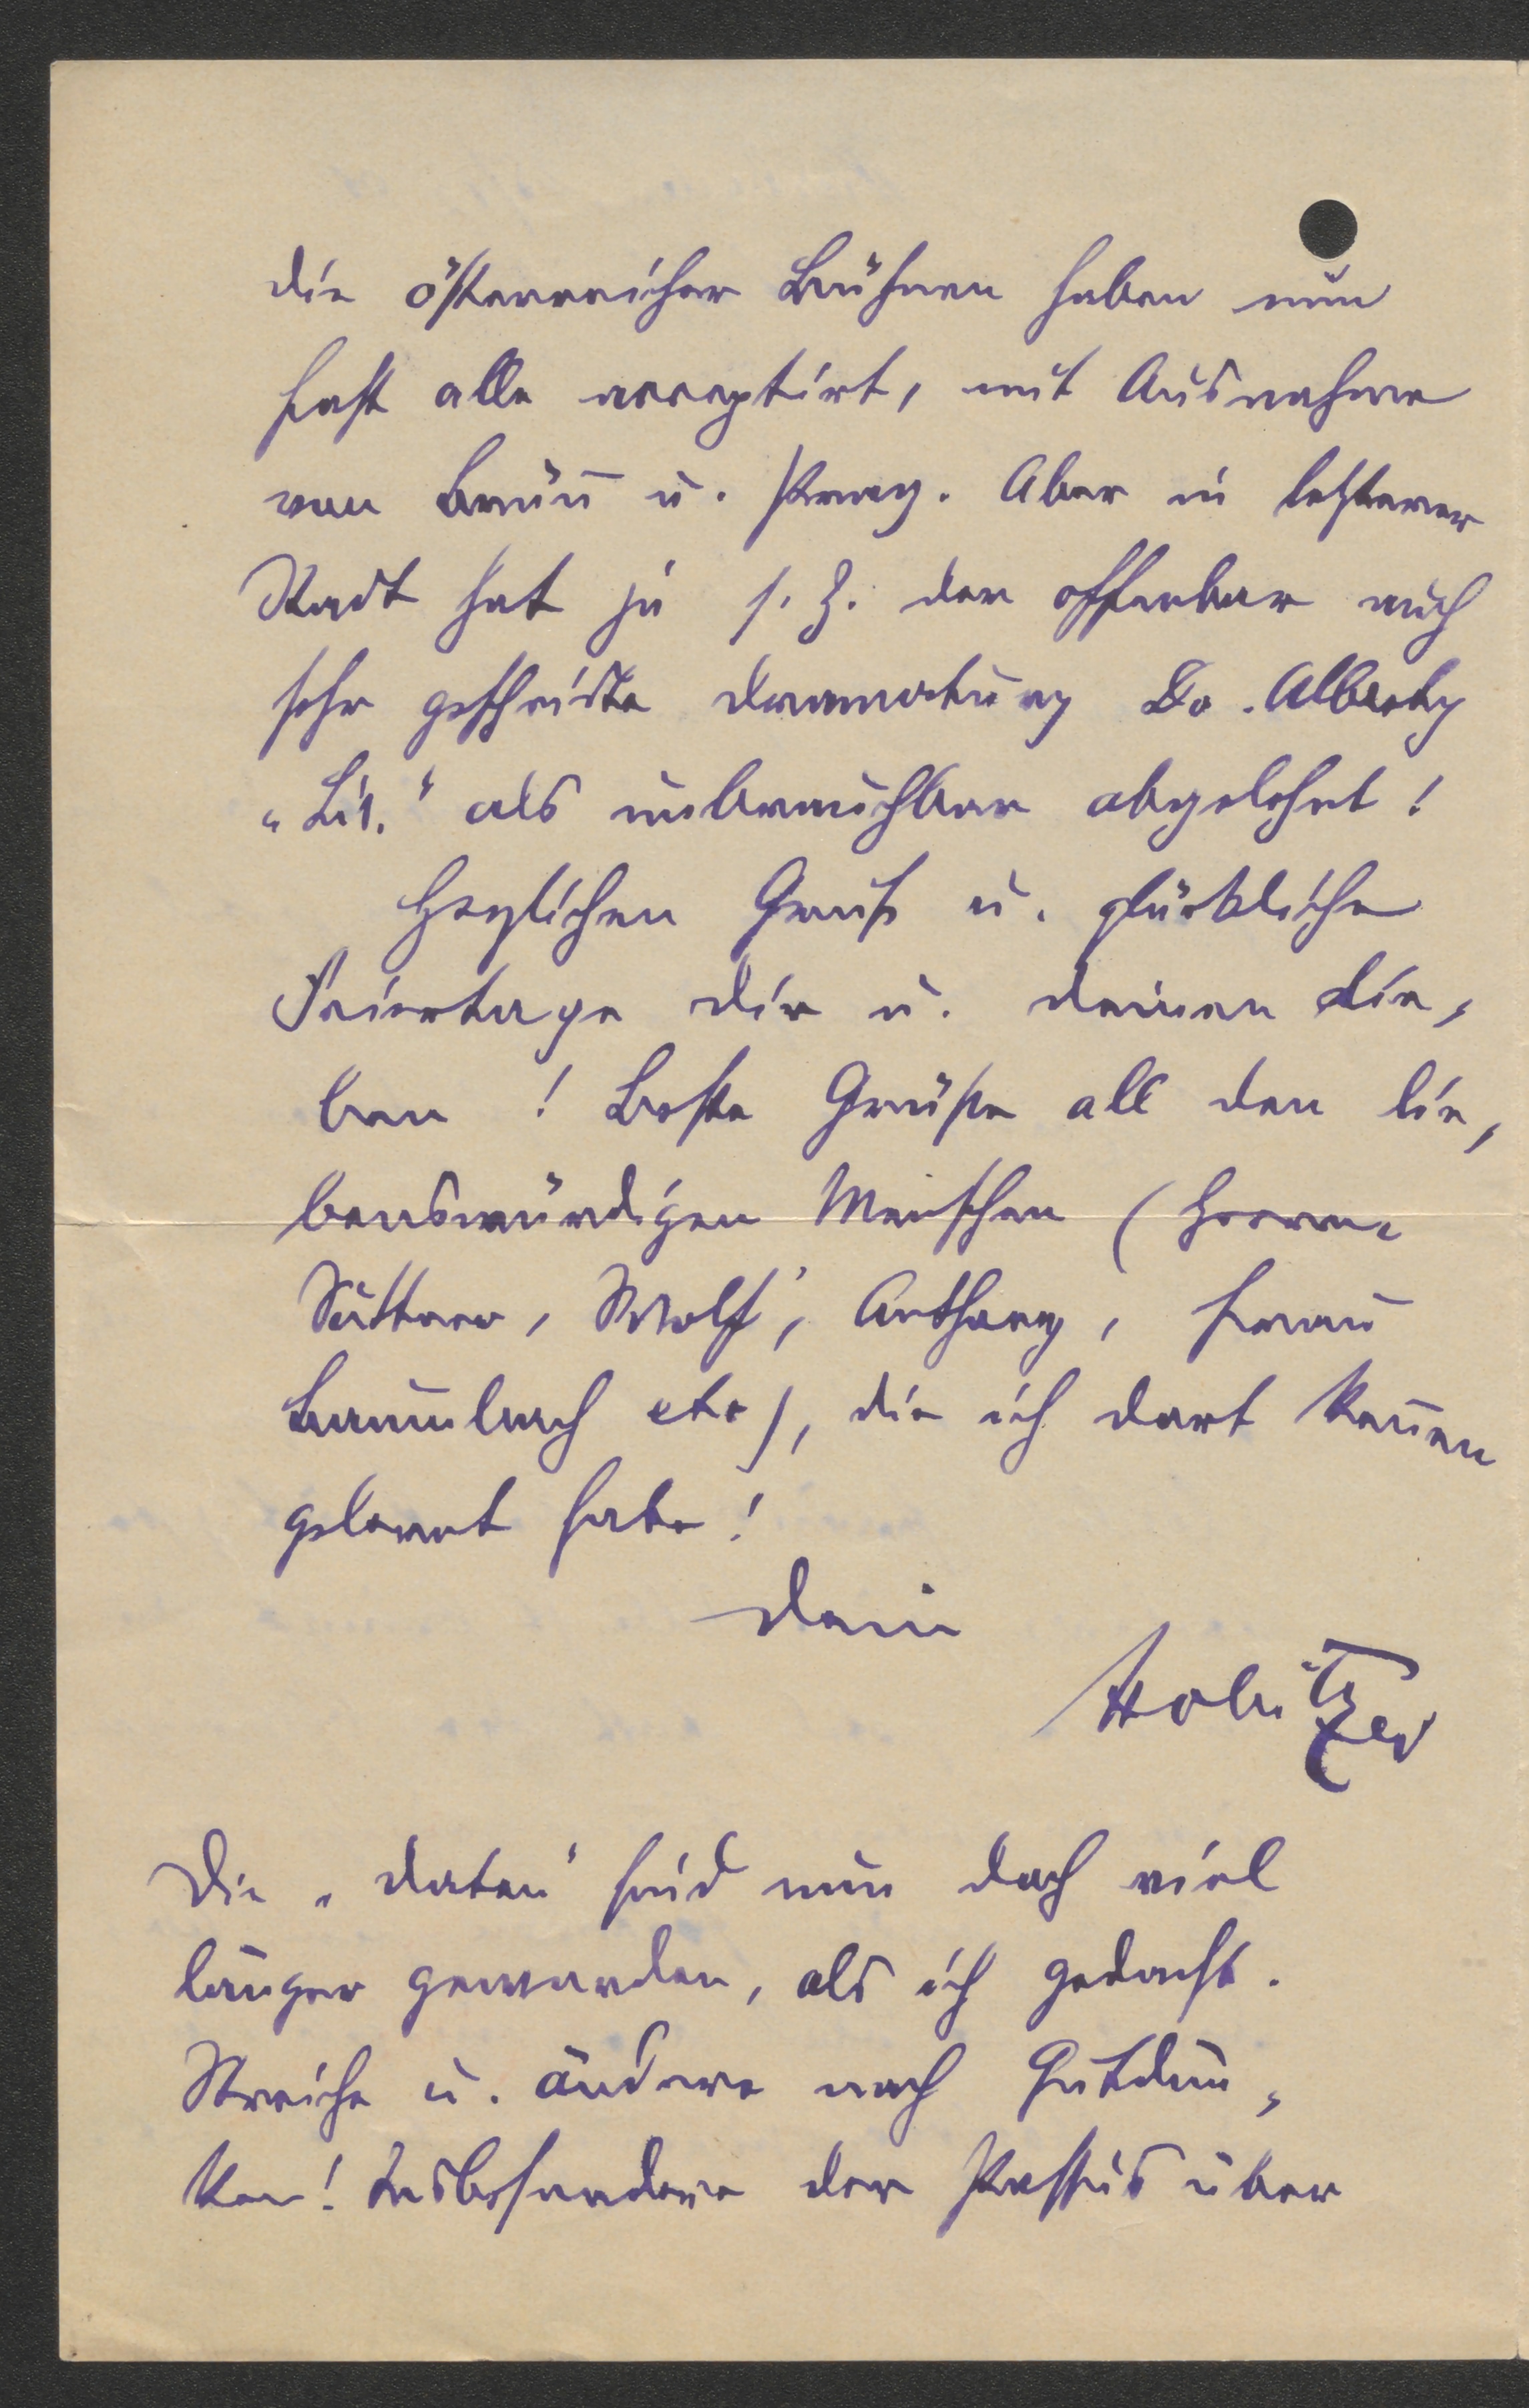 die österreicher Bühnen haben nun
fast alle acceptirt, mit Ausnahme
von Brünn u. Prag. Aber in letzterer
Stadt hat ja s. Z. der offenbar auch
sehr gescheidte Dramaturg Dr.
„Lis.“ als unbrauchbar abgelehnt!
Herzlichen Gruß u. glückliche
Feiertage dir u. deinen Lie-
ben! Beste Grüße all den lie-
benswürdigen Menschen (Herren
Suttner, Wolf, Anthony, Frau
Baumbach etc), die ich dort kennen
gelernt habe!
Dein
Holitzer
Die „Daten“ sind nun doch viel
länger geworden, als ich gedacht.
Streiche u. ändere nach Gutdün-
ken! Insbesondere der Passus über